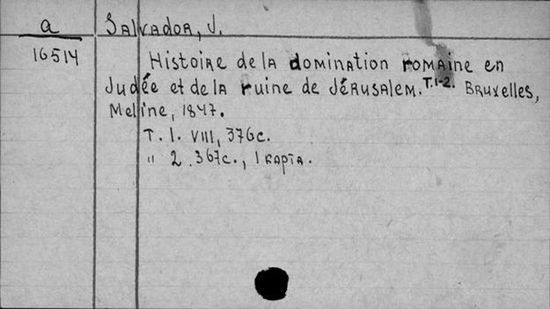 a
16514
Salvador, J.
Histoire de la domination romaine en
Judée et de la ruine de Jérusalem. T. 1-2. Bruxelles,
Meline, 1847.
T. 1. VIII, 376с.
" 2. 367с., 1 карта.